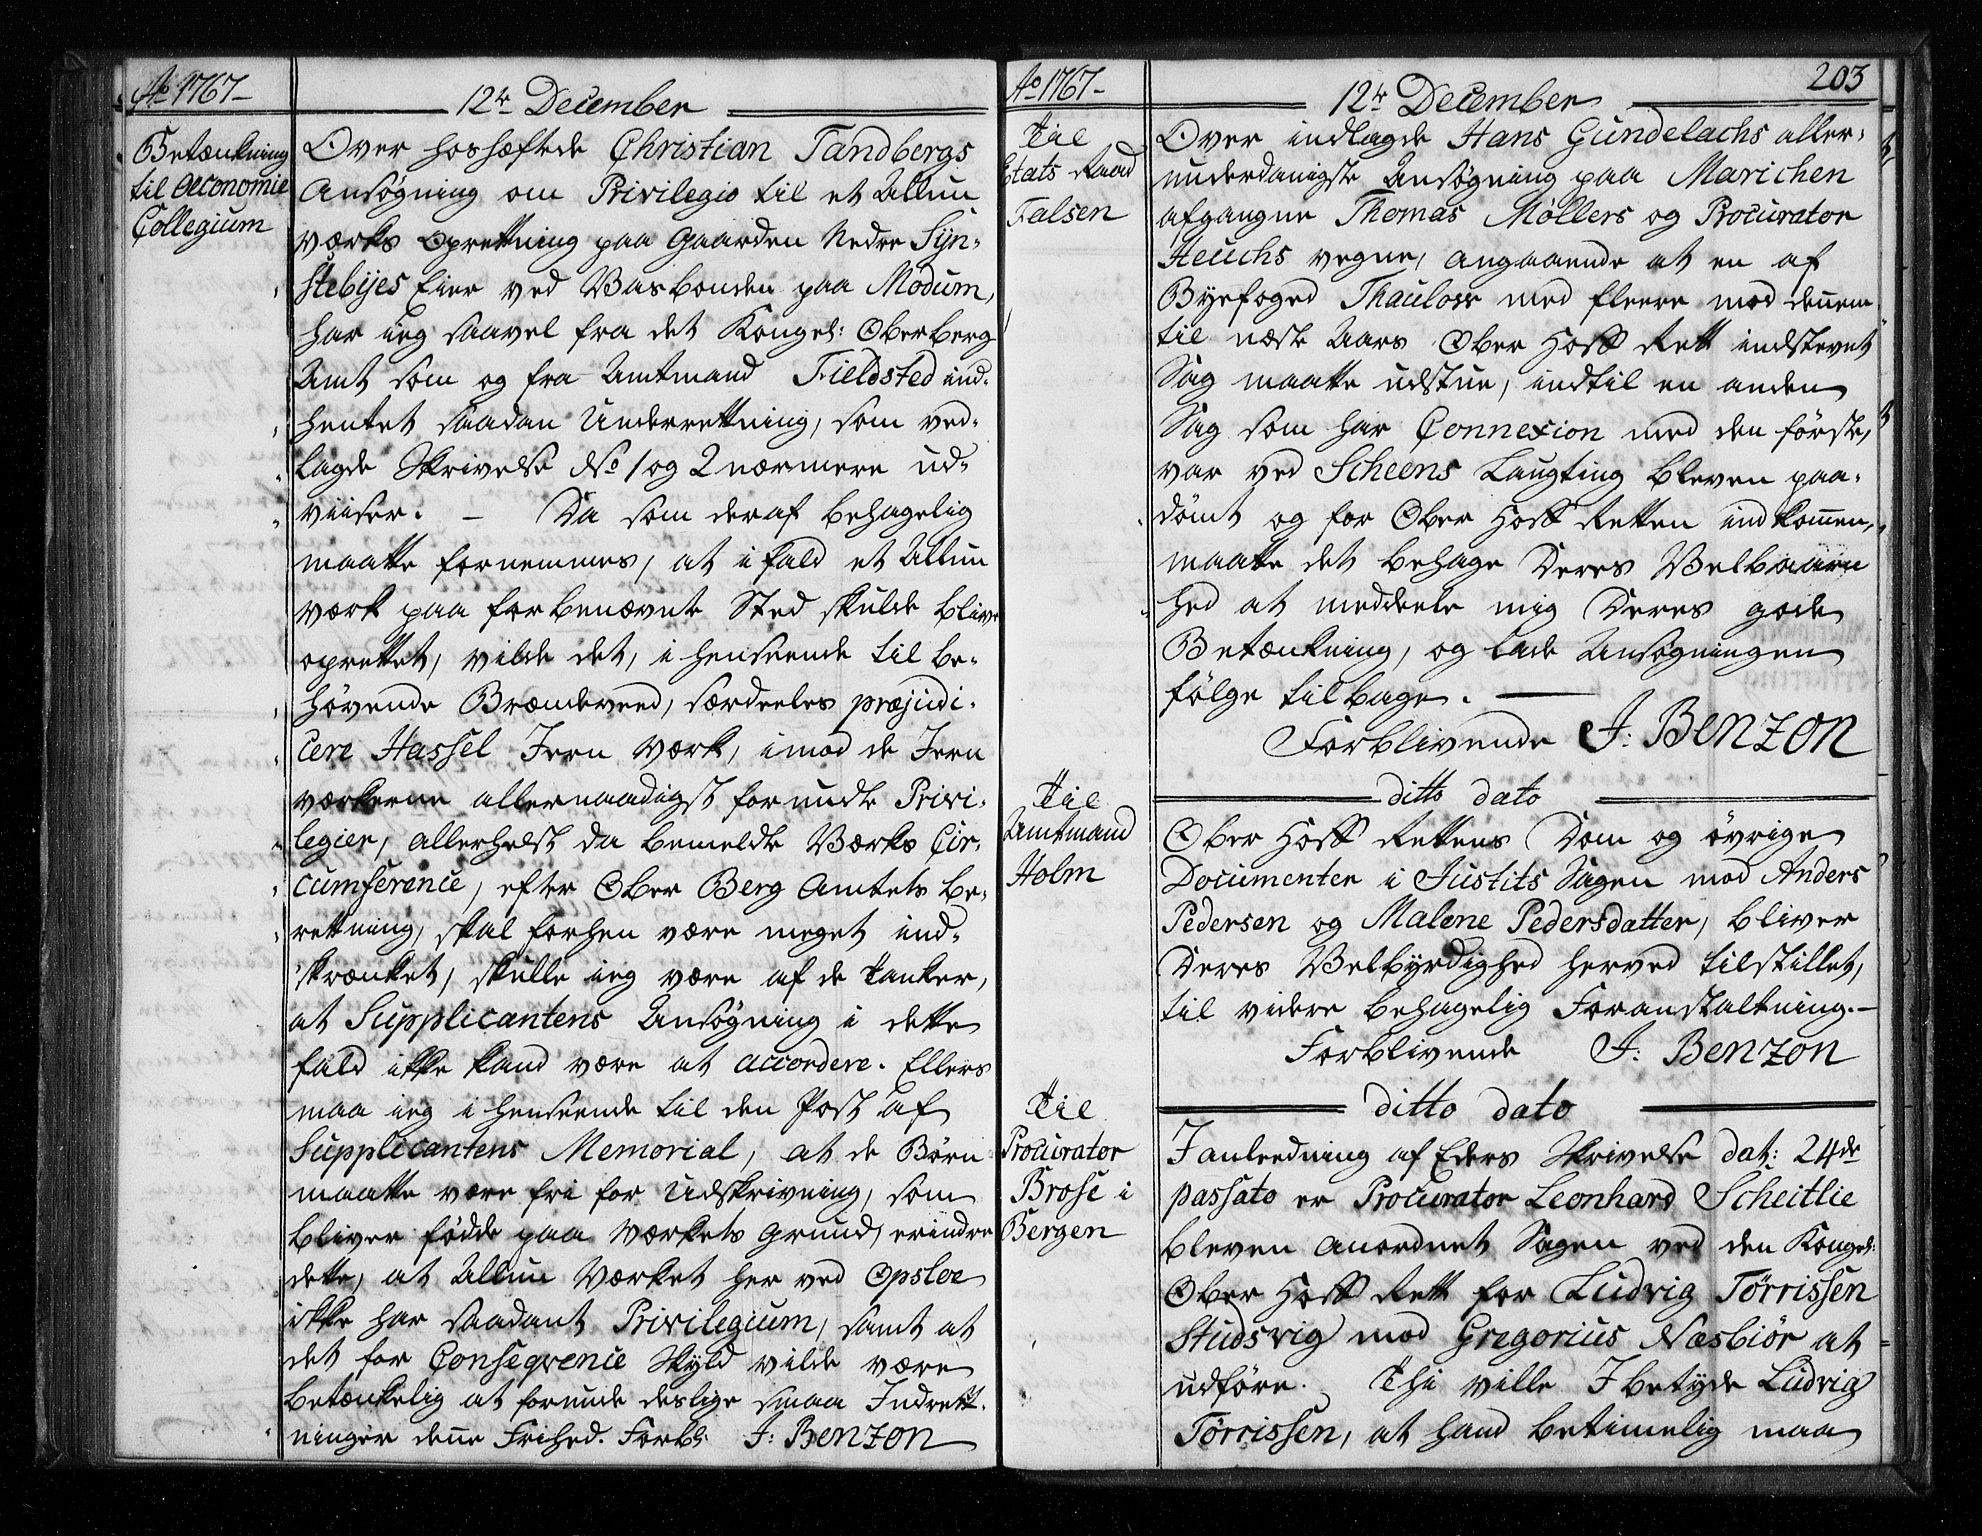 Ao 1767
12te December
Betænkning
til Oeconomie
Collegium
Over hoshæftede Christian Tandbergs
Ansøgning om Privilegio til et Allun
værks Oprettning paa Gaarden Nedre Sÿn-
stebÿes Eier ved Basbonden paa Modum,
har ieg saavel fra det Kongel: Oberberg
Amt som og fra Amtmand Fieldsted ind-
hentet saadan Underrettning, som ved-
lagde Skrivelse No 1 og 2 nærmere ud-
viiser. – Da som deraf behagelig
maatte fornemmes, at i fald et Allun
værk paa forbenævnte Sted skulde blive
oprettet, vilde det, i henseende til be-
høvende Brændeveed, særdeeles præjudi-
cere Hassel Jern Værk, imod de Jern
værkerne allernaadigst forundte Privi-
legier, allerhelst da bemeldte Værks Cir-
cumference, efter Ober Berg Amtets be-
rettning, skal forhen være meget ind-
skrænket, skulle ieg være af de Tanker,
at Supplicantens Ansøgning i dette
fald ikke kand være at accordere. Ellers
maa ieg i henseende til den Post af
Supplicantens Memorial, at de Børn
maatte være fri for Udskrivning, som
bliver fødde paa Værkets Grund, erindre
dette, at Allun Værket her ved Opsloe
ikke har saadant Privilegium, samt at
det for Conseqvence Skyld vilde være
betænkelig at forunde deslige smaa Indrett-
ninger denne Frihed. Forbl: J: Benzon
Ao 1767
12te December
203
Til
Etats Raad
Falsen
Over indlagde Hans Gundelachs aller-
underdanigste Ansøgning paa Marichen
afgangne Thomas Møllers og Procurator
Heuchs vegne, angaaende at en af
Byefoged Thaulow med fleere mod dennem
til næste Aars Ober Hoff Rett indstevnet
Sag maatte udstaae, indtil en anden
Sag som har Connexion med den første,
var ved Scheens Laugting bleven paa-
dømt og for Ober Hoff Retten indkommen,
maatte det behage Deres Velbaarn
hed at meddeele mig Deres gode
Betænkning, og lade Ansøgningen
følge tilbage.
Forblivende J: Benzon
ditto dato
Til
Amtmand
Holm
Ober Hoff Rettens Dom og øvrige
Documenter i Justits Sagen mod Anders
Pedersen og Malene Pedersdatter, bliver
Deres Velbyrdighed herved tilstillet,
til videre behagelig Foranstaltning. –
Forblivende J: Benzon
ditto dato
Til
Procurator
Brose i
Bergen
I anleedning af Eders Skrivelse dat: 24de
passato er Procurator Leonhard Scheitlie
bleven anordnet Sagen ved den Kongel:
Ober Hoff Rett for Ludvig Tørrissen
Studsvig mod Gregorius Næsbiør at
udføre. Thi ville I betyde Ludvig
Tørrissen, at hand betimelig maa